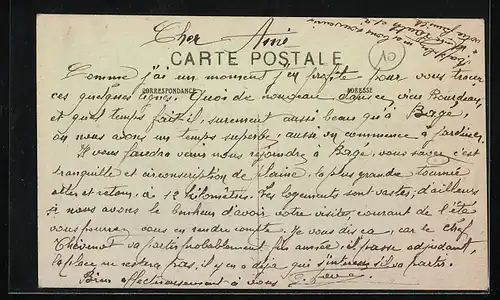 Cher Ami
CARTE POSTALE
Comme j'ai un moment j'en profite pour vous tracer
CORRESPONDANCE
ADRESSE
ces quelques lignes. Quoi de nouveau dans ce vieux
et quel temps fait-il, surement aussi beau qu'à Bagé,
où nous avons un temps superbe, aussi on commence à jardiner.
Il vous faudra venir nous rejoindre à Bagé, vous savez c'est
tranquille et circonscription de plaine, la plus grande tournée
aller et retour, à 12 kilomètres. Les logements sont vastes, d'ailleurs
si nous avons le bonheur d'avoir votre visite, courant de l'été
vous pourrez vous en rendre compte. Je vous dis ça, car le chef
va partir probablement en année, il passe adjudant,
la place ne restera pas, il y en a déjà qui s'intéressent s'il va partir.
Bien affectueusement à vous